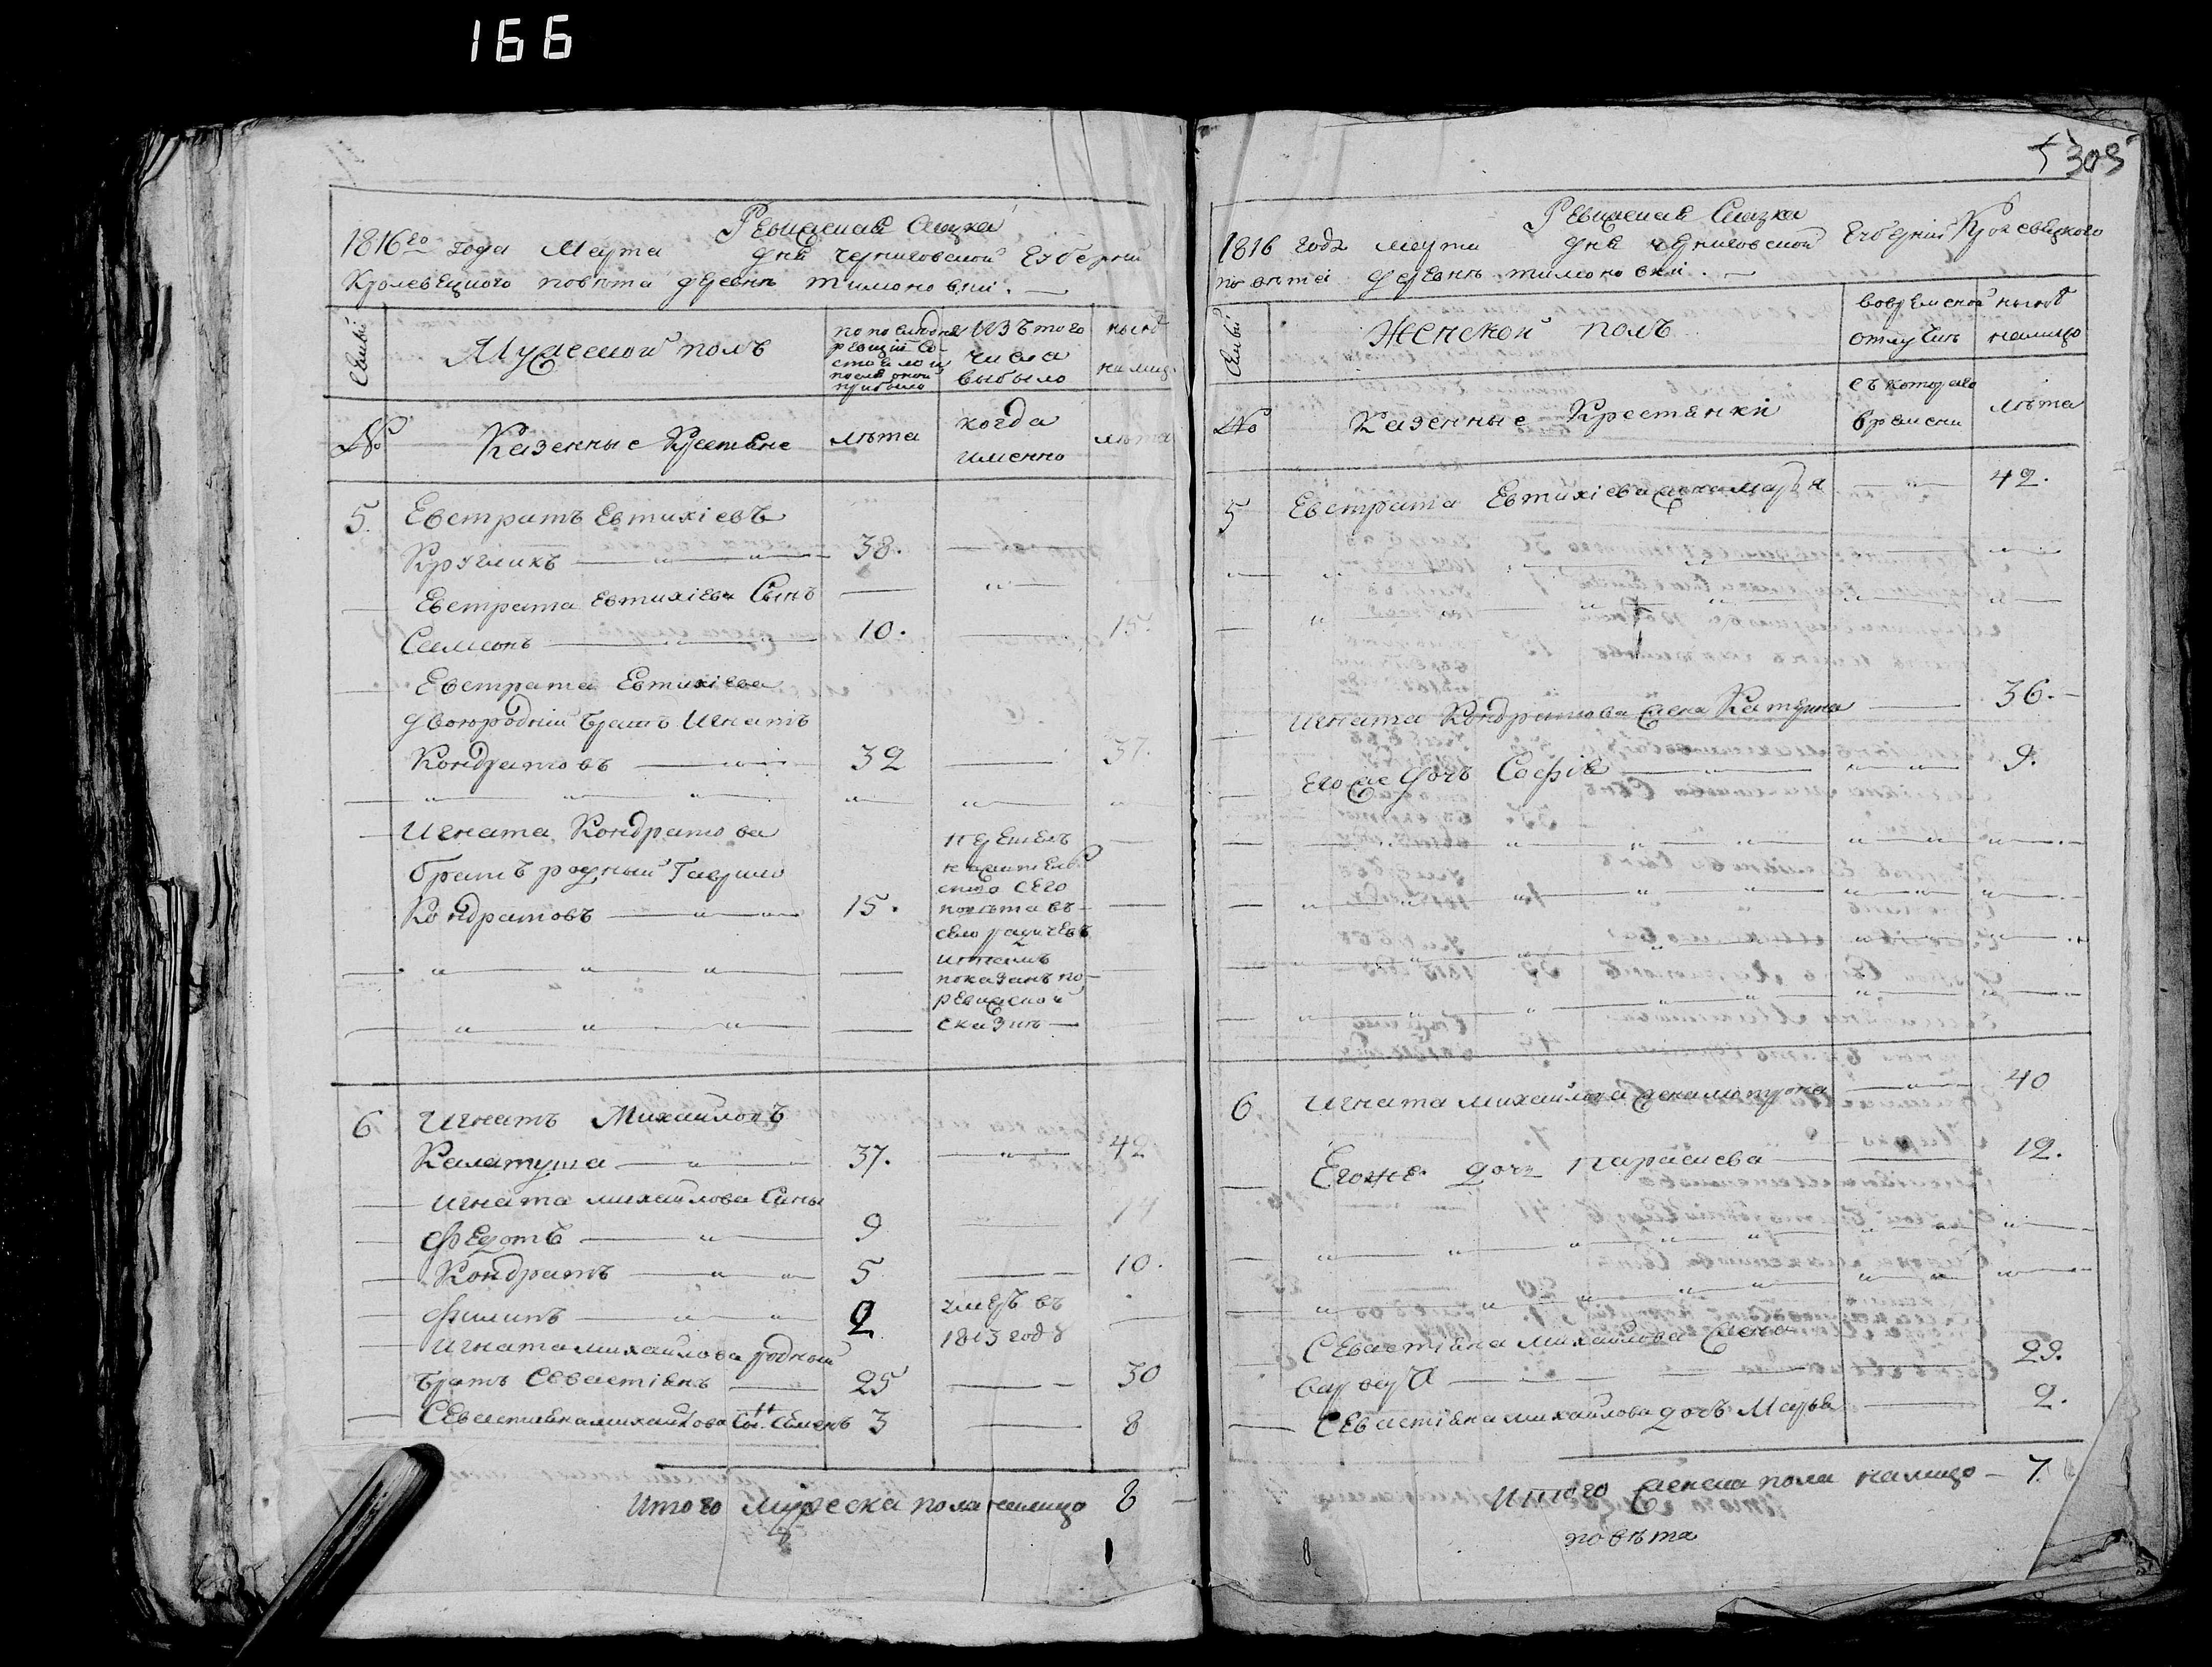 166
5 305
Ревижская Скаска
1816го года Марта дня Черниговской Губернии
Кролевецкого повѣта деревнѣ тимоновки.
Семьи
Мужеской полъ
по последней ревизіи состояло и после оной прибыло
Изъ того числа выбыло
нынѣ на лицо
№
Казенные Крестяне
лѣта
когда именно
лѣта
5. Евстратъ Евтихіевъ
Кругликъ 38.
Евстрата Евтихіева Сынъ
Самсонъ 10. 15.
Евстрата Евтихіева
двоюродній братъ Игнатъ
Кондратовъ 32 37.
Игната Кондратова
братъ родный Гаврило
Кондратовъ 15.
перешелъ
на жительство сего
повѣта въ
село
и тамъ
показанъ по
ревижской
сказкѣ
6 Игнатъ Михайловъ
Калатуша 37. 42
Игната михайлова Сины
Федотъ 9 14
Кондратъ 5 10.
Филипъ 2 умеръ въ 1813 годѣ
Игната михайлова родный
братъ Севастіянъ 25 30
Севастияна михайлова Сы. Семенъ 3 8
Итого мужеска пола налицо 8
Ревижская Сказка
1816 года марта дня черниговской Губерніи Кролевецкого
повѣта деревнѣ тимоновки.
Семьи
Женской полъ
во временной отлучкѣ
нынѣ налицо
№
Казенные Крестянки
съ которого времени
лѣта
5 Евстрата Евтихіева жена Марья 42.
Игната Кондратова жена Катерина 36.
Его же дочь Софія 9.
6 Игната михайлова жена мотрона 40
Егоже дочь Параскева 12.
Севастіяна михайлова жена
Варвара 29.
Севастіяна михайлова дочь Марья 2.
Итого женска пола налицо 7.
повѣта